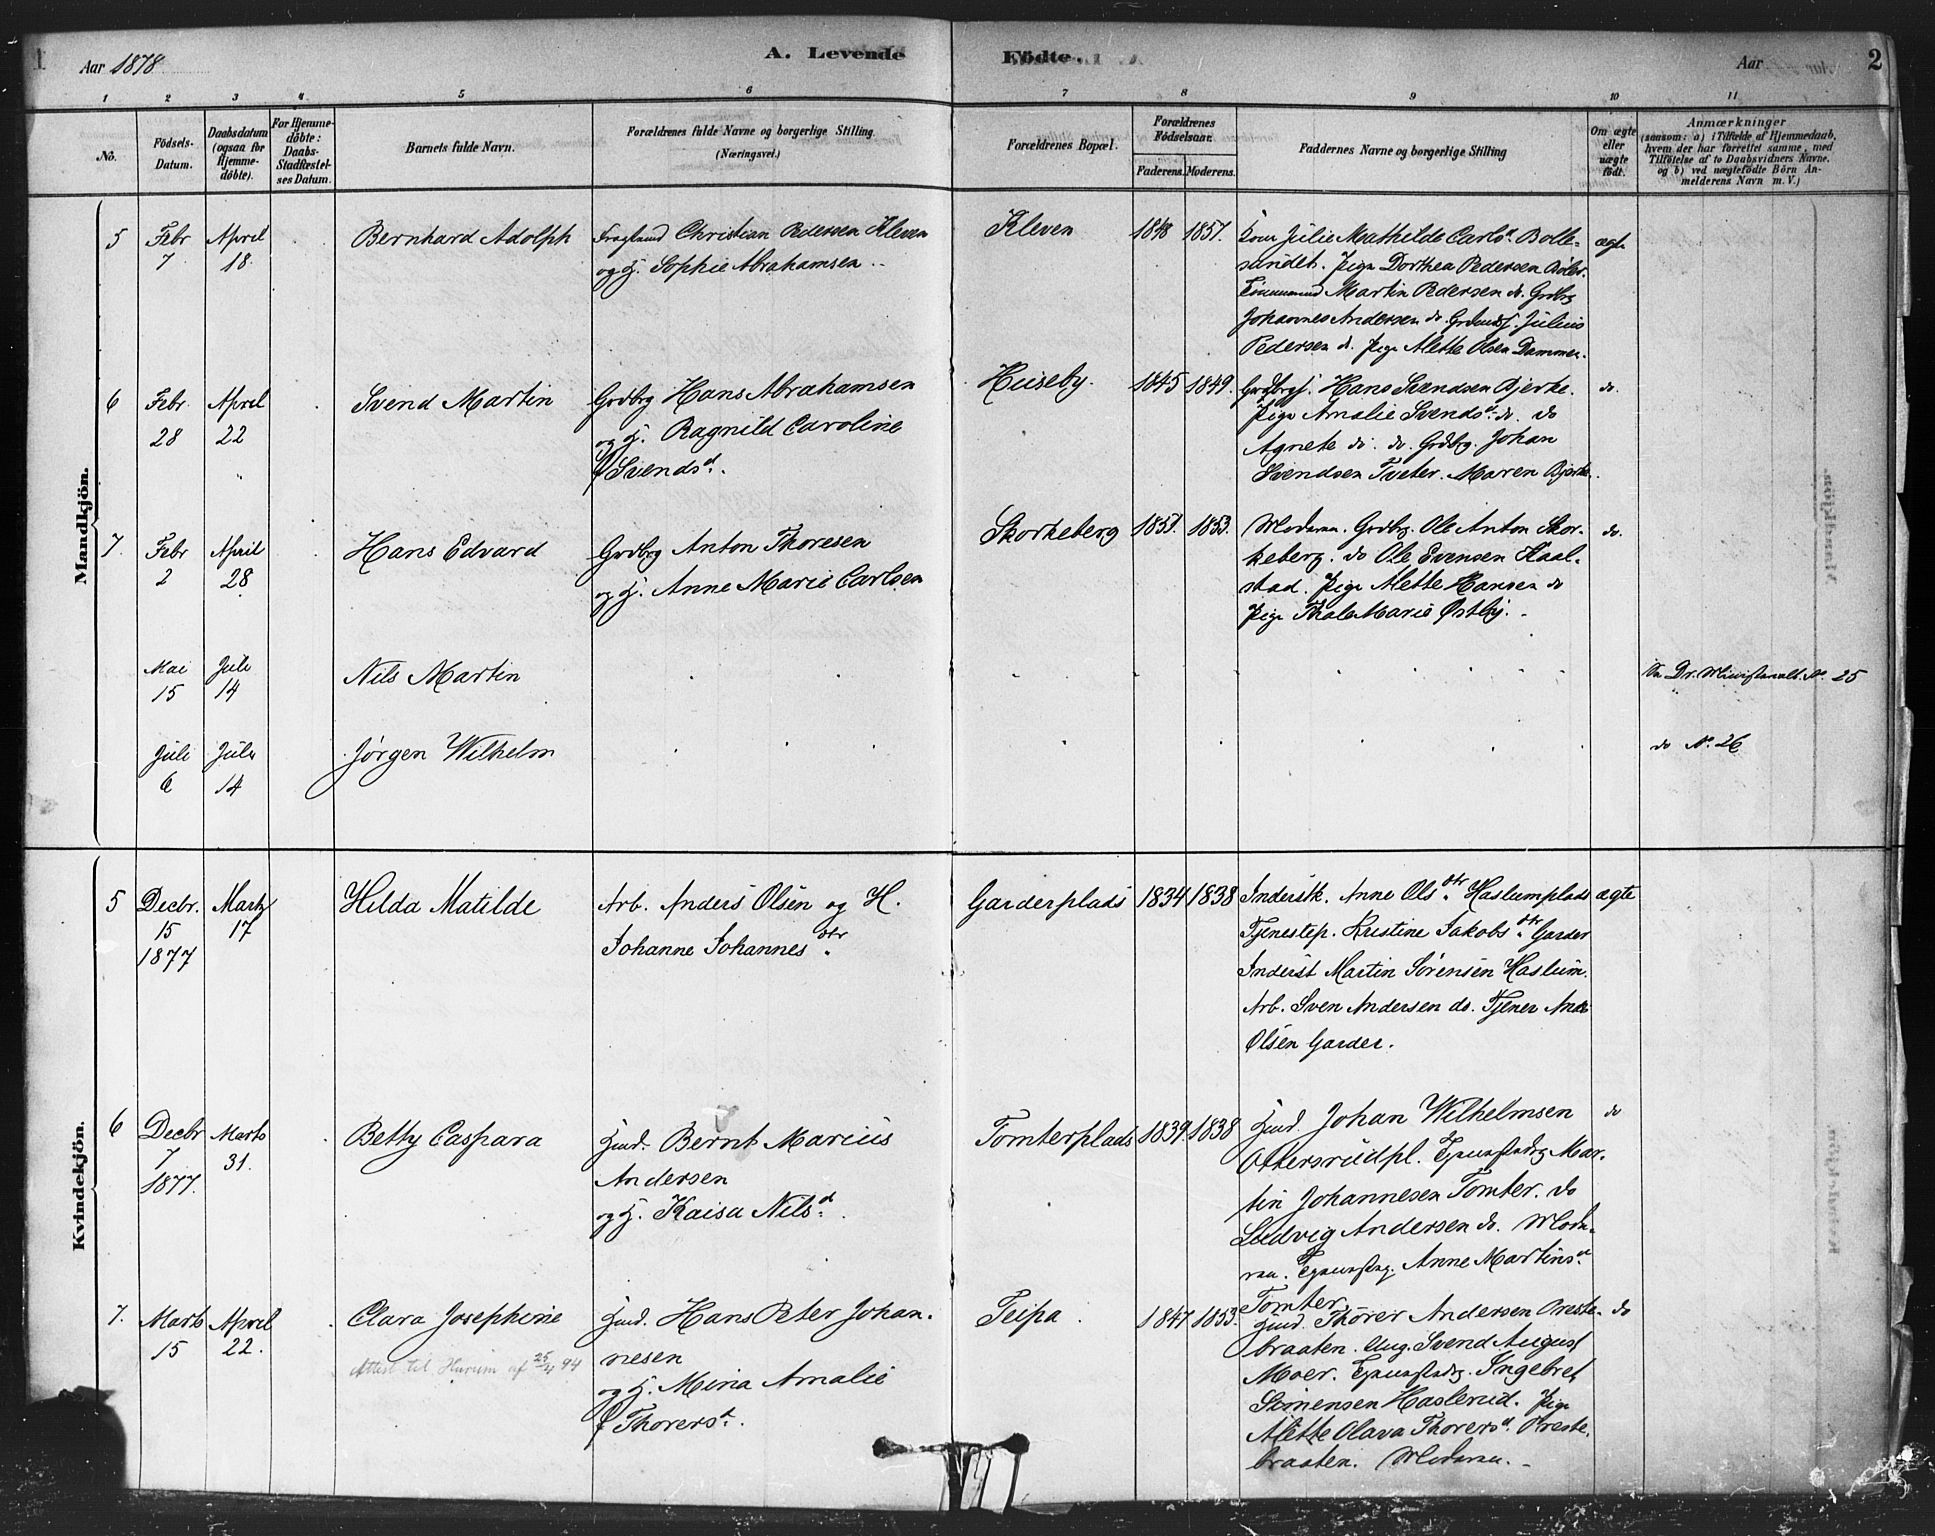 1
Aar 1878
A. Levende
Födte.
Aar
2
1 2 3 4 5 6 7 8 9 10 11
No.
Födsels-Datum.
Daabsdatum (ogsaa for Hjemme-döbte).
For Hjemme-döbte: Daabs-Stadfæstel-ses Datum.
Barnets fulde Navn.
Forældrenes fulde Navne og borgerlige Stilling (Næringsvei.)
Forældrenes Bopæl.
Forældrenes Födselsaar.
Faderens. Moderens.
Faddernes Navne og borgerlige Stilling
Om ægte eller uægte født.
Anmærkninger
(saasom: a) i Tilfælde af Hjemmedaab,
hvem der har forrettet samme, med
Tilföielse af to Daabsvidners Navne.
og b) ved uægtefödte Börn An-
melderens Navn m. V.)
Mandkjön.
5 Febr 7 April 18. Bernhard Adolph
Christian Pedersen Kleven
og H. Sophie Abrahamsen
Kleven 1848 1857.
Kone Julie Mathilde Carlsd. Bolle-
sundet. Pige Dorthea Pedersen
Martin Pedersen do. Grdbrg
Johannes Andersen do. Julius
Pedersen do. Pige Alette Olsen Dammen.
ægte
6 Febr. 28 April 22 Svend Martin
Grdbrg Hans Abrahamsen
og H. Ragnild Caroline
Svendsd.
Huseby. 1845 1849.
Hans Svendsen Bjerke.
Pige Amalie Svendsd. do. do
Agnete do. do. Grdbrg. Johan
Svendsen Tveter. Maren Bjerke.
do.
7. Febr 2 April 28 Hans Edvard
Grdbrg Anton Thoresen
og H. Anne Marie Carlsen
Skorkeberg 1851. 1853.
Moderen. Grdbrg. Ole Anton Skor-
keberg. do Ole Evensen Kaal-
stad. Pige Alette Hansen do
Pige Thale Marie Østby.
do.
Mai 15 Juli 14 Nils Martin
Dr. No. 25
Juli 6 Juli 14 Jørgen Wilhelm
do No. 26
Kvindekjön.
5 Decbr. 15 1877 Marts 17 Hilda Matilde
Arb. Anders Olsen og H.
Johanne Johannesdtr.
Garderplads 1834 1838
Inderstk. Anne Olsdtr. Haslumplads
Tjenestep. Kristine Jakobsdtr. Garder
Inderst Martin Sørensen Haslum.
Arb. Sven Andersen do. Tjener Andr
Olsen Garder.
ægte
6 Decbr 7 1877. Marts 31. Betty Caspara
Hmd. Bernt Marius
Andersen
og H. Kaisa Nilsd.
Tomterplads 1839. 1838
Hmd. Johan Wilhelmsen
Ottersrudpl. Mar-
tin Johannesen Tomter. do
Ludvig Andersen do. Mode-
ren. Anne Martinsd.
Tomter.
do
7. Marts 15 April 22. Clara Josephine
Attest til Hurum af 25/4 94
Hmd. Hans Peter Johan-
nesen
og H. Mina Amalie
Thorersd.
Teipa 1847. 1853.
Hmd. Thorer Andersen Oreste-
braaten. Ung. Svend August
Moer. Ingebret
Simensen Haslerud. Pige
Alette Olava Thorersd. Oreste-
braaten. Moderen.
do